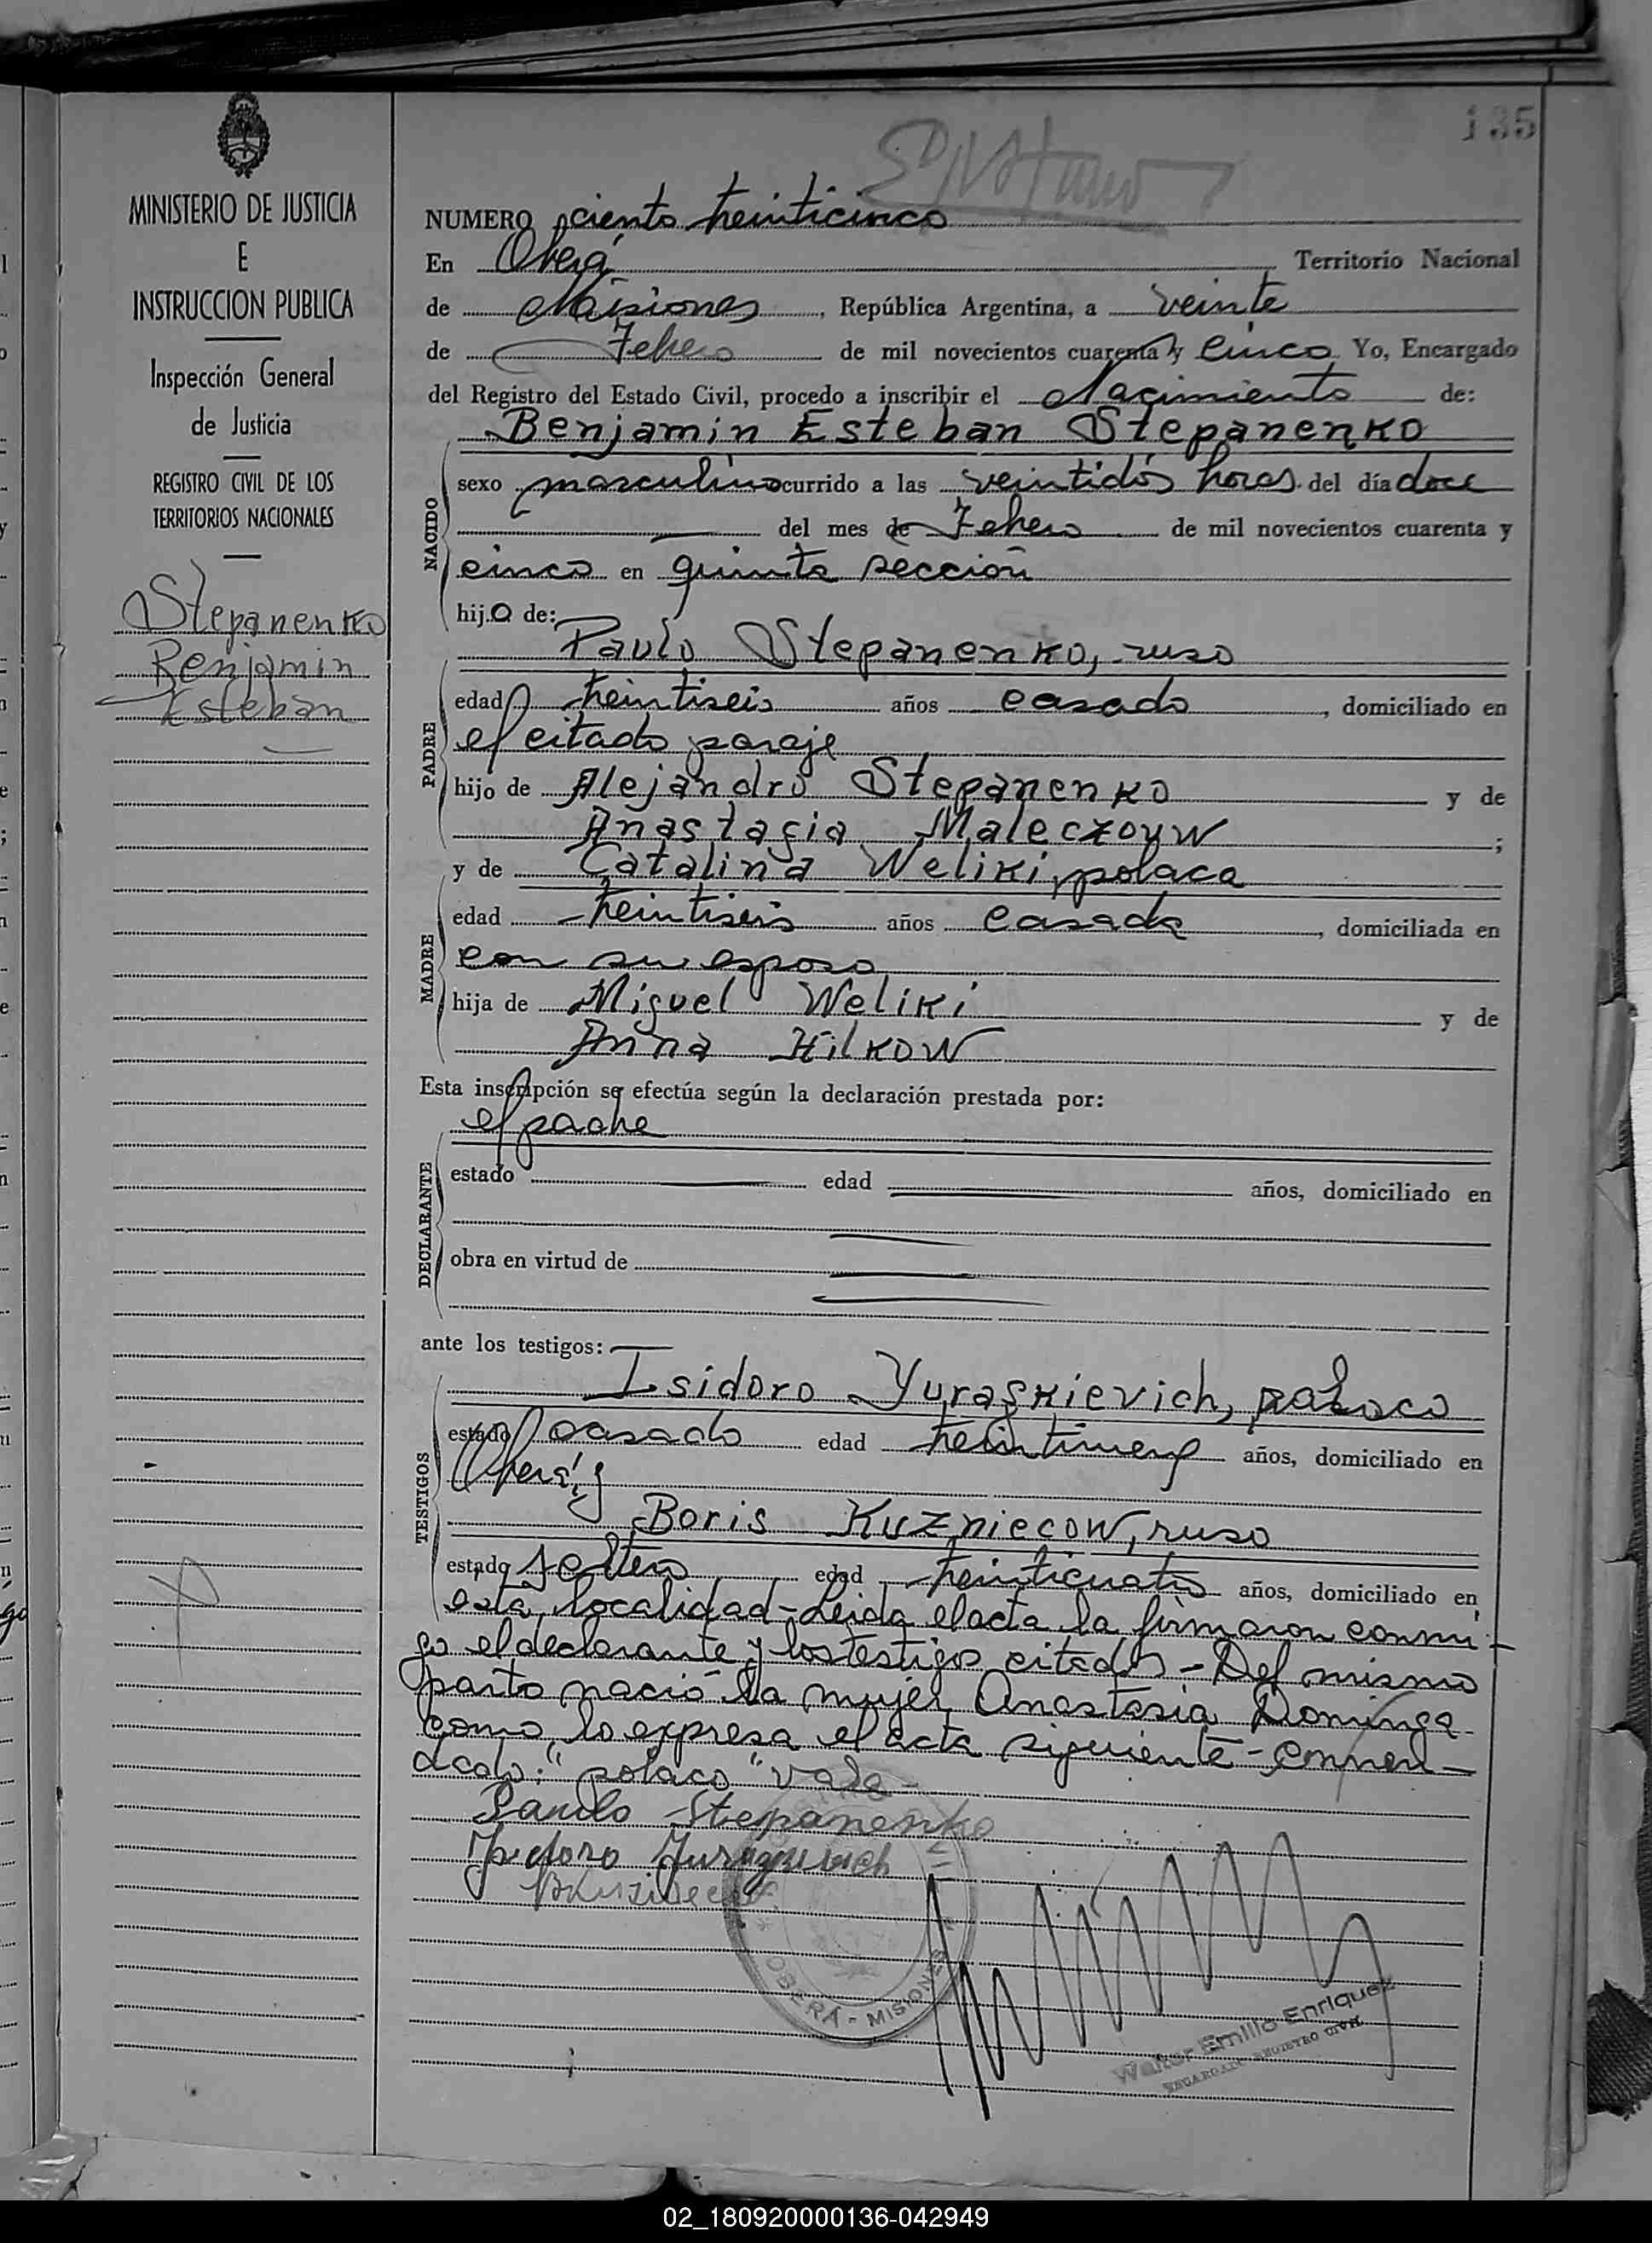 135
MINISTERIO DE JUSTICIA
E
INSTRUCCION PUBLICA
Inspección General
de Justicia
REGISTRO CIVIL DE LOS
TERRITORIOS NACIONALES
Stepanenko
Benjamin
Esteban
NUMERO ciento treinticinco
En Oberá Territorio Nacional
de Misiones, República Argentina, a veinte
de Febrero de mil novecientos cuarenta y cinco Yo, Encargado
del Registro del Estado Civil, procedo a inscribir el Nacimiento de:
Benjamin Esteban Stepanenko
NACIDO
sexo masculino ocurrido a las veintidós horas del día doce
del mes de Febrero de mil novecientos cuarenta y
cinco en quinta sección
hijo de:
Pavlo Stepanenko, ruso
PADRE
edad treintiseis años casado, domiciliado en
el citado paraje
hijo de Alejandro Stepanenko y de
Anastasia Maleczoyw;
y de Catalina Weliki, polaca
MADRE
edad treintiseis años casada, domiciliada en
con su esposo
hija de Miguel Weliki y de
Anna Hilkow
Esta inscripción se efectúa según la declaración prestada por:
el padre
DECLARANTE
estado edad años, domiciliado en
obra en virtud de
ante los testigos:
Isidoro Yuraskievich, polaco
TESTIGOS
estado casado edad treintinueve años, domiciliado en
Oberá y
Boris Kuzniecow, ruso
estado soltero edad treinticuatro años, domiciliado en
esta localidad - Leida el acta la firmaron conmi-
go el declarante y los testigos citados - Del mismo
parto nació la mujer Anastasia Dominga
como lo expresa el acta siguiente - Enmen-
dado: "polaco" vale -
Pavlo Stepanenko
OBERÁ - MISIONES
Walter Emilio Enriquez
ENCARGADO REGISTRO CIVIL
02_180920000136-042949